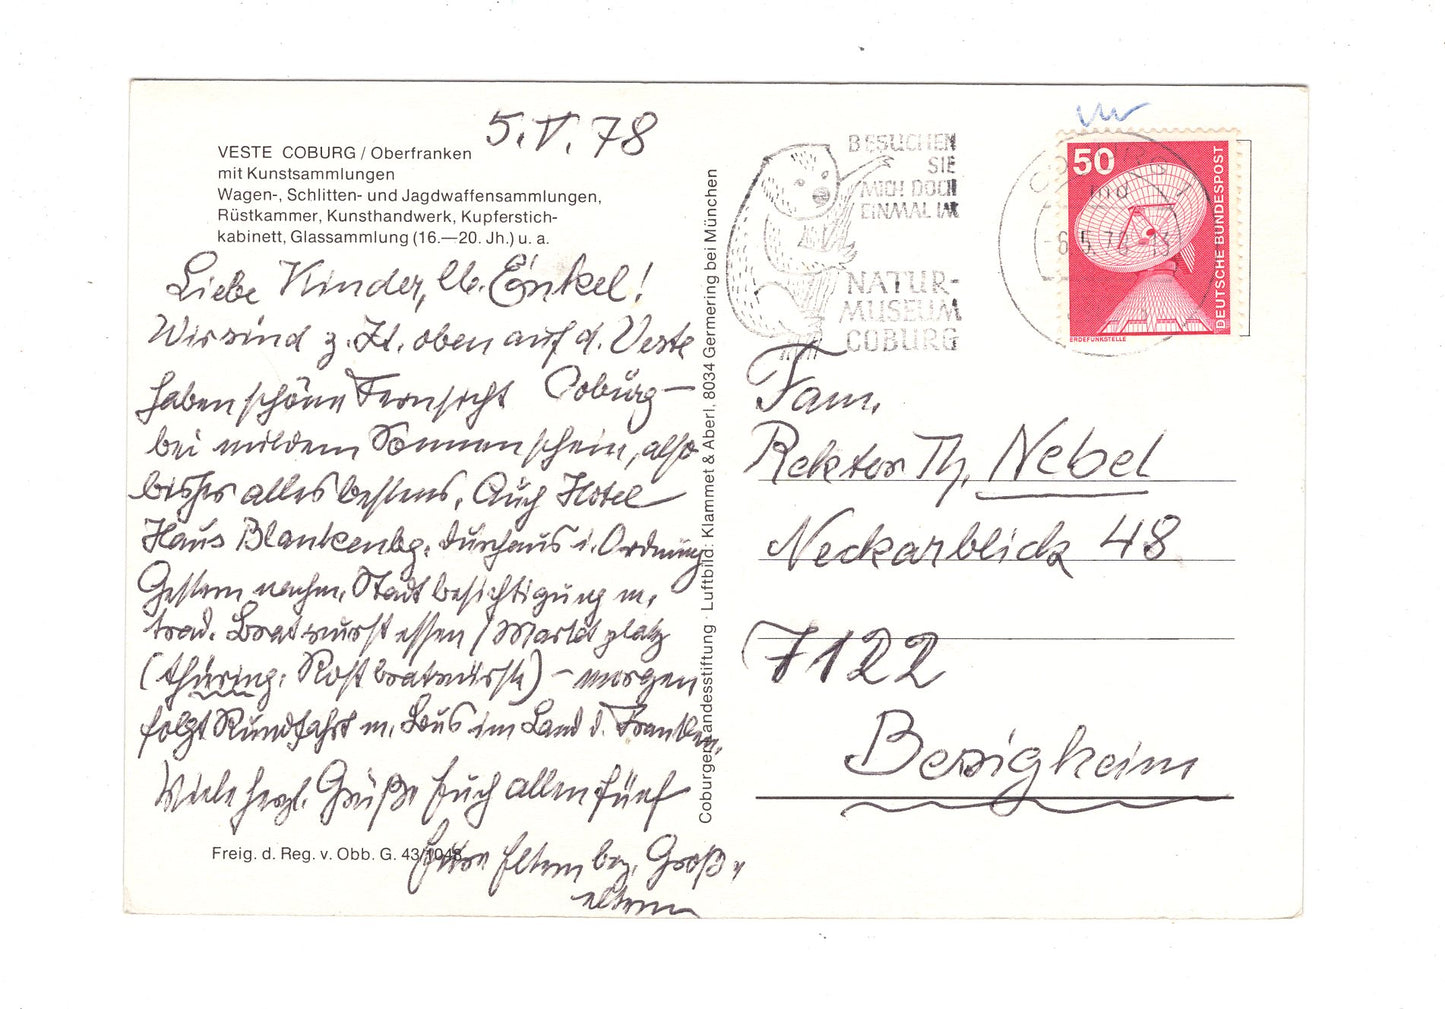 5.V.78
VESTE COBURG / Oberfranken
mit Kunstsammlungen
Wagen-, Schlitten- und Jagdwaffensammlungen,
Rüstkammer, Kunsthandwerk, Kupferstich-
kabinett, Glassammlung (16.—20. Jh.) u. a.
Liebe Kinder, lb. Enkel!
Wir sind z. Zt. oben auf d. Veste
haben schöne Fernsicht Coburg –
bei mildem Sonnenschein, also
bisher alles bestens. Auch Hotel
Haus Blankenbg. durchaus i. Ordnung
Gestern nachm. Stadtbesichtigung m.
trad. Bratwurstessen / Marktplatz
(thüring. Rostbratwürste) – morgen
folgt Rundfahrt m. Bus im Land d. Franken.
Viele herzl. Grüße Euch allen fünf
Eure Eltern bez. Groß-
eltern
Freig. d. Reg. v. Obb. G. 43/1048
Coburger Landesstiftung · Luftbild: Klammet & Aberl, 8034 Germering bei München
BESUCHEN
SIE
MICH DOCH
EINMAL IM
NATUR-
MUSEUM
COBURG
COBURG 1
-6.5.78-13
50
DEUTSCHE BUNDESPOST
ERDEFUNKSTELLE
Fam.
Rektor Th. Nebel
Neckarblick 48
7122
Besigheim